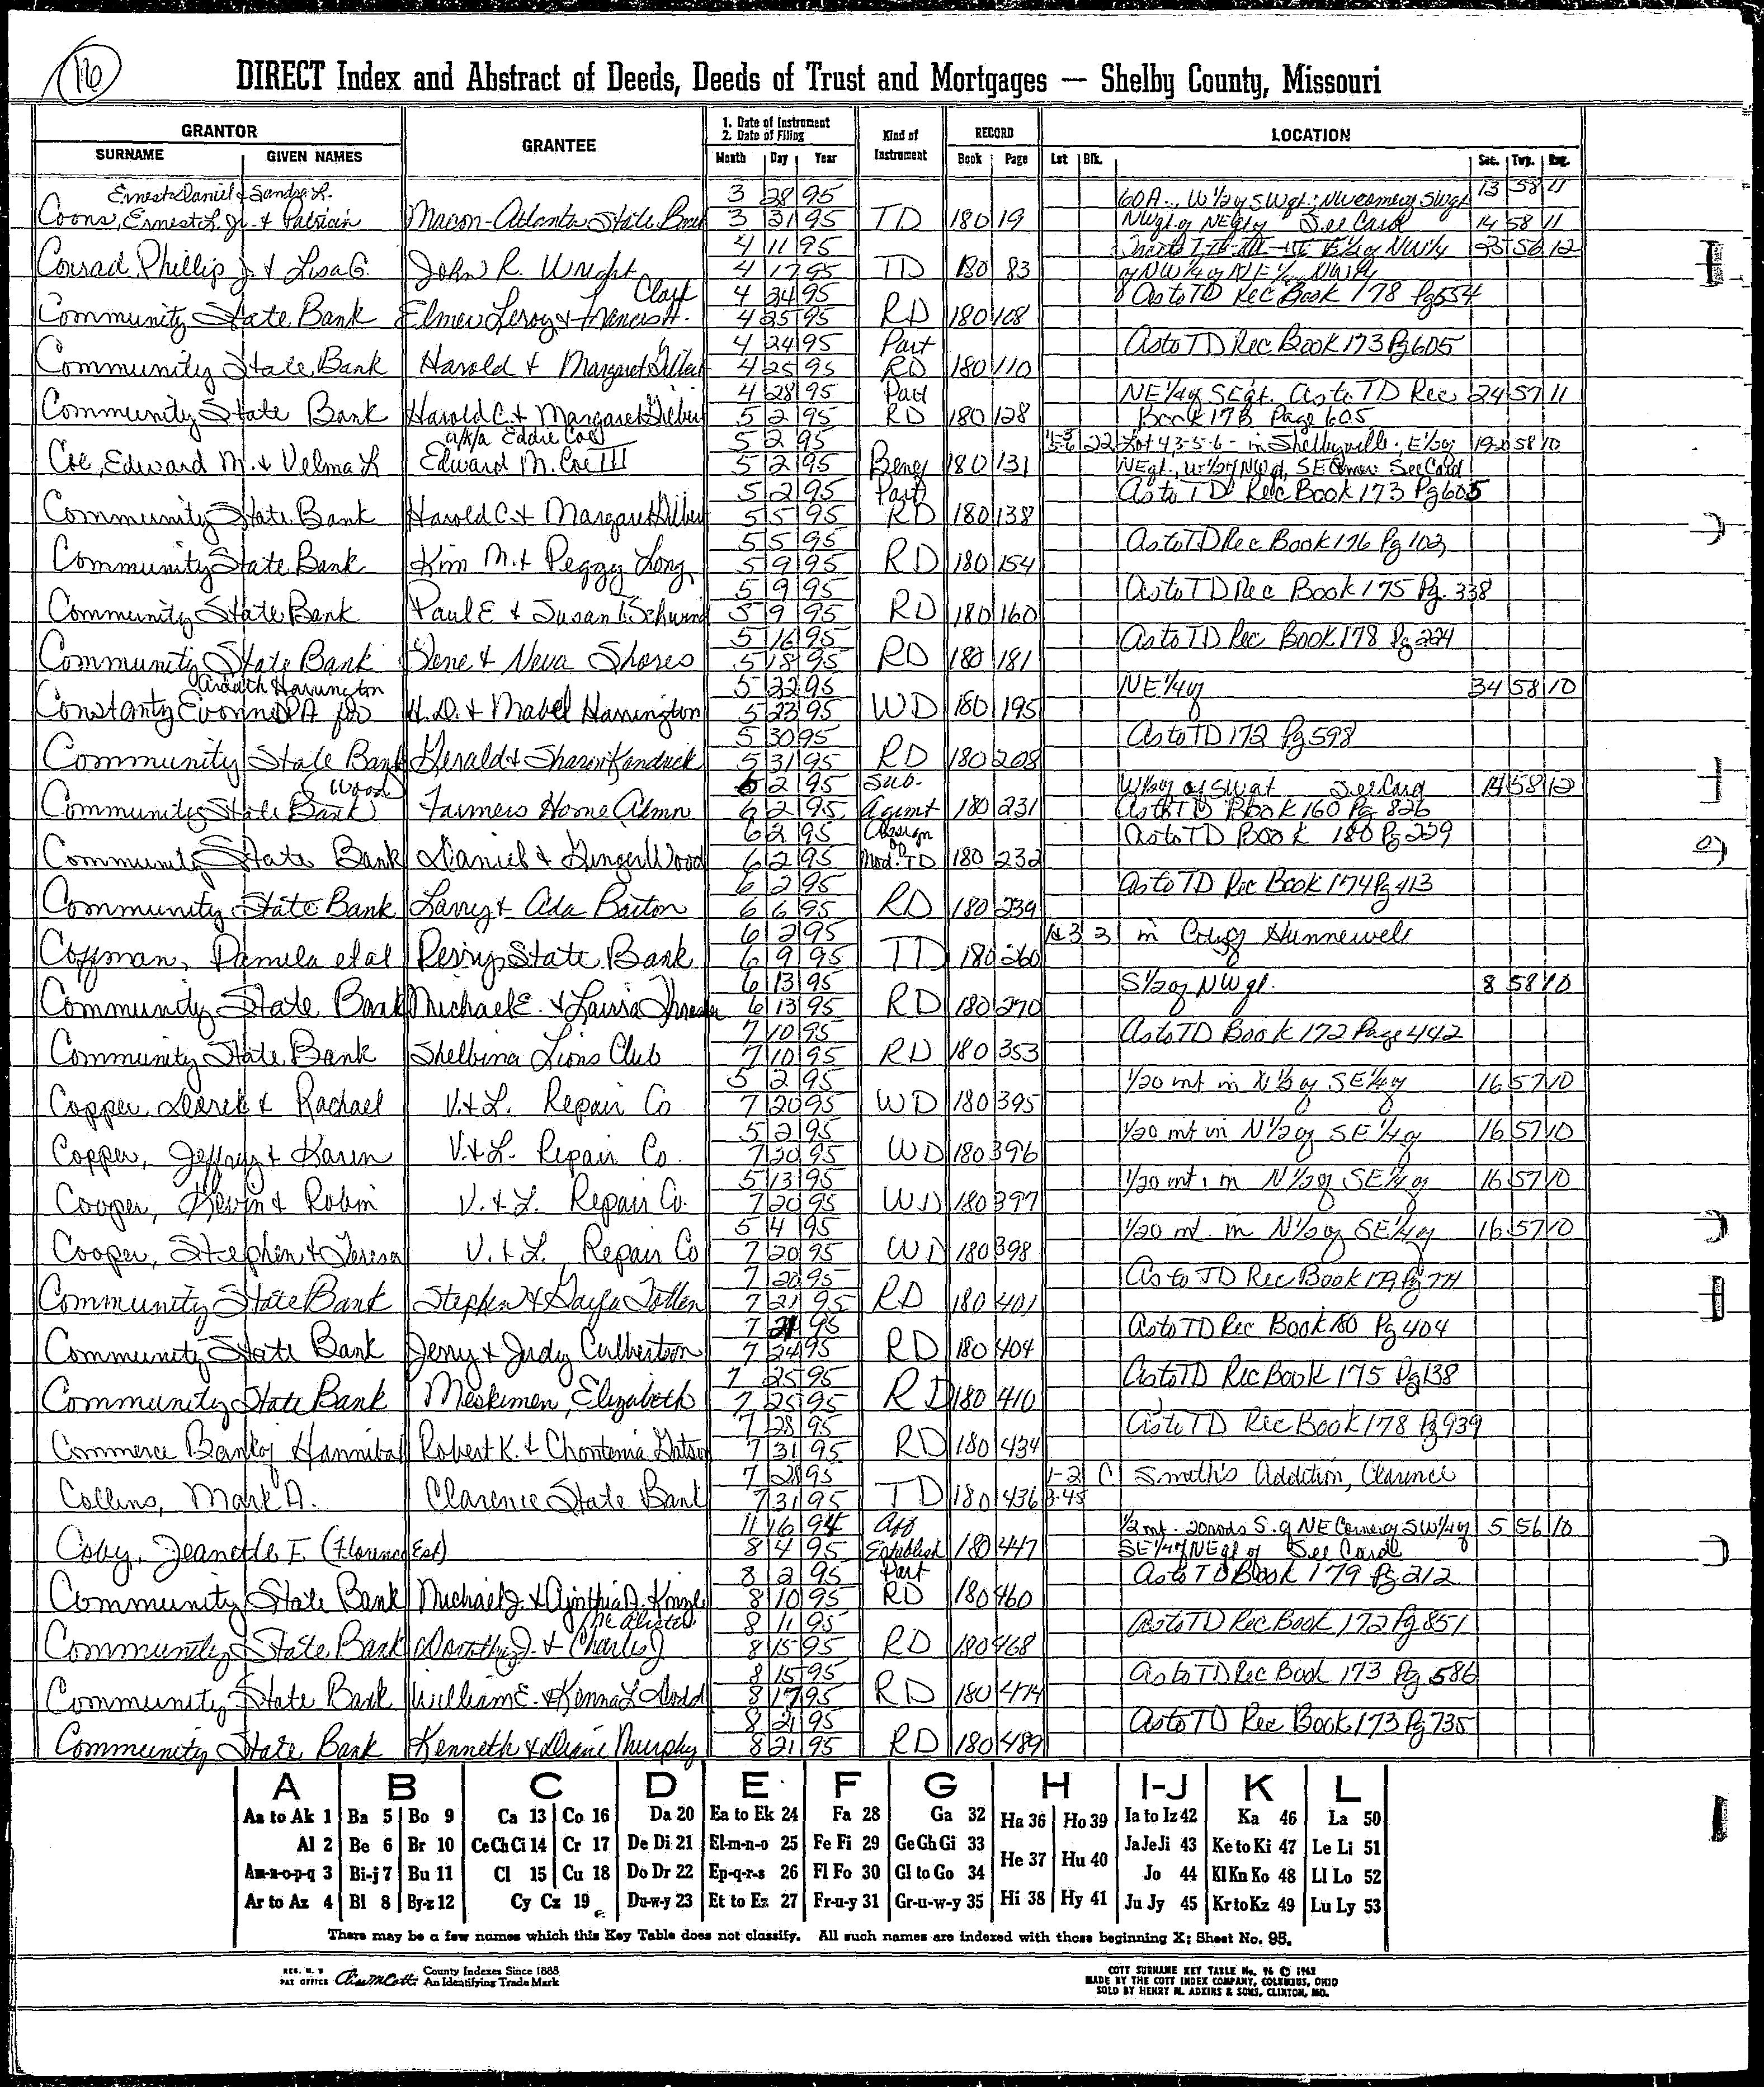 16
DIRECT Index and Abstract of Deeds, Deeds of Trust and Mortgages — Shelby County, Missouri
GRANTOR GRANTEE 1. Date of Instrument 2. Date of Filing Kind of Instrument RECORD LOCATION
SURNAME GIVEN NAMES Month Day Year Book Page Lot Blk. Sec. Twp. Rng.
Ernest Daniel & Sandra L. 3 28 95 60A., W 1/2 of SW qt; NW corner of SW qt 13 58 11
Coons, Ernest L. Jr. & Patricia Macon-Atlanta State Bank 3 31 95 TD 180 19 NW qt of NE qt of See Card 14 58 11
4 11 95 E 1/2 of NW 1/4 35 56 12
Conrad Phillip J. & Lisa G. John R. Wright 4 17 95 TD 180 83 of NW 1/4 of NE 1/4
Clark 4 24 95 As to TD Rec Book 178 Pg 554
Community State Bank Elmer Leroy & Frances H. 4 25 95 RD 180 108
4 24 95 Part As to TD Rec Book 173 Pg 605
Community State Bank Harold & Margaret Gilbert 4 25 95 RD 180 110
4 28 95 Part NE 1/4 of SE qt. As to TD Rec 24 57 11
Community State Bank Harold C. & Margaret Gilbert 5 2 95 RD 180 128 Book 173 Page 605
a/k/a Eddie Coe 5 2 95 22 Lot 4,3-5-6 - in Shelbyville; E 1/2 of 19-20 58 10
Coe, Edward M. & Velma L Edward M. Coe III 5 2 95 Beney 180 131 NE qt., W 1/2 of NW qt, SE Corner See Card
5 2 95 Part As to TD Rec Book 173 Pg 605
Community State Bank Harold C. & Margaret Gilbert 5 5 95 RD 180 138
5 5 95 As to TD Rec Book 176 Pg 102
Community State Bank Kim M. & Peggy Long 5 9 95 RD 180 154
5 9 95 As to TD Rec Book 175 Pg. 338
Community State Bank Paul E & Susan T. Schwind 5 9 95 RD 180 160
5 16 95 As to TD Rec Book 178 Pg 224
Community State Bank Gene & Neva Shores 5 18 95 RD 180 181
Ardath Harrington 5 22 95 NE 1/4 of 34 58 10
Constanty Evonne A for H.D. & Mabel Harrington 5 23 95 WD 180 195
5 30 95 As to TD 172 Pg 598
Community State Bank Gerald & Sharon Kendrick 5 31 95 RD 180 208
Wood 6 2 95 Sub. W 1/2 of SW qt See Card 14 58 12
Community State Bank Farmers Home Admn 6 2 95 Agemt 180 231 As to TD Book 160 Pg 826
6 2 95 Assign As to TD Book 180 Pg 229
Community State Bank Daniel & Ginger Wood 6 2 95 Mod. TD 180 232
6 2 95 As to TD Rec Book 174 Pg 413
Community State Bank Larry & Ada Barton 6 6 95 RD 180 239
6 2 95 3 in City of Hunnewell
Coffman, Pamela et al Perry State Bank 6 9 95 TD 180 260
6 13 95 S 1/2 of NW qt. 8 58 10
Community State Bank Michael E. & Laura Thrasher 6 13 95 RD 180 270
7 10 95 As to TD Book 172 Page 442
Community State Bank Shelbina Lions Club 7 10 95 RD 180 353
5 2 95 1/20 int in N 1/2 of SE 1/4 of 16 57 10
Copper, Derek & Rachael V. & L. Repair Co 7 20 95 WD 180 395
5 2 95 1/20 int in N 1/2 of SE 1/4 of 16 57 10
Copper, Jeffrey & Karen V. & L. Repair Co. 7 20 95 WD 180 396
5 13 95 1/20 int. in N 1/2 of SE 1/4 of 16 57 10
Cooper, Kevin & Robin V. & L. Repair Co. 7 20 95 WD 180 397
5 4 95 1/20 int. in N 1/2 of SE 1/4 of 16 57 10
Cooper, Stephen & Teresa V. & L. Repair Co 7 20 95 WD 180 398
7 20 95 As to TD Rec Book 179 Pg 774
Community State Bank Stephen & Gayla Tollen 7 21 95 RD 180 401
7 21 95 As to TD Rec Book 180 Pg 404
Community State Bank Jerry & Judy Culbertson 7 24 95 RD 180 404
7 25 95 As to TD Rec Book 175 Pg 138
Community State Bank Meskimen, Elizabeth 7 25 95 RD 180 410
7 28 95 As to TD Rec Book 178 Pg 939
Commerce Bank of Hannibal Robert K. & Chontenia 7 31 95 RD 180 434
7 28 95 1-2 C Smith's Addition, Clarence
Collins, Mark A. Clarence State Bank 7 31 95 TD 180 436 3-4-5
11 16 94 Aff 1/2 int. - 20 rods S. of NE Corner of SW 1/4 of 5 56 10
Coby, Jeanette F. (Florence Est) 8 4 95 Establish 180 447 SE 1/4 of NE qt of See Card
8 2 95 Part As to TD Book 179 Pg 212
Community State Bank Michael J. & Cynthia D. 8 10 95 RD 180 460
McAlister 8 11 95 As to TD Rec Book 172 Pg 851
Community State Bank Dorothy J. & Charles J 8 15 95 RD 180 468
8 15 95 As to TD Rec Book 173 Pg 586
Community State Bank William E. & Kenna L Dodd 8 17 95 RD 180 474
8 21 95 As to TD Rec Book 173 Pg 735
Community State Bank Kenneth & Diane Murphy 8 21 95 RD 180 489
A B C D E F G H I-J K L
Aa to Ak 1 Ba 5 Bo 9 Ca 13 Co 16 Da 20 Ea to Ek 24 Fa 28 Ga 32 Ha 36 Ho 39 Ia to Iz 42 Ka 46 La 50
Al 2 Be 6 Br 10 CeChCi 14 Cr 17 De Di 21 El-m-n-o 25 Fe Fi 29 GeGhGi 33 He 37 Hu 40 JaJeJi 43 Ke to Ki 47 Le Li 51
Am-n-o-p-q 3 Bi-j 7 Bu 11 Cl 15 Cu 18 Do Dr 22 Ep-q-r-s 26 Fl Fo 30 Gl to Go 34 Jo 44 KlKnKo 48 Ll Lo 52
Ar to Az 4 Bl 8 By-z 12 Cy Cz 19 Du-w-y 23 Et to Ez 27 Fr-u-y 31 Gr-u-w-y 35 Hi 38 Hy 41 Ju Jy 45 Kr to Kz 49 Lu Ly 53
There may be a few names which this Key Table does not classify. All such names are indexed with those beginning X; Sheet No. 95.
REG. U. S. PAT OFFICE County Indexes Since 1888 An Identifying Trade Mark
COTT SURNAME KEY TABLE No. 96 © 1962
MADE BY THE COTT INDEX COMPANY, COLUMBUS, OHIO
SOLD BY HENRY M. ADKINS & SONS, CLINTON, MO.